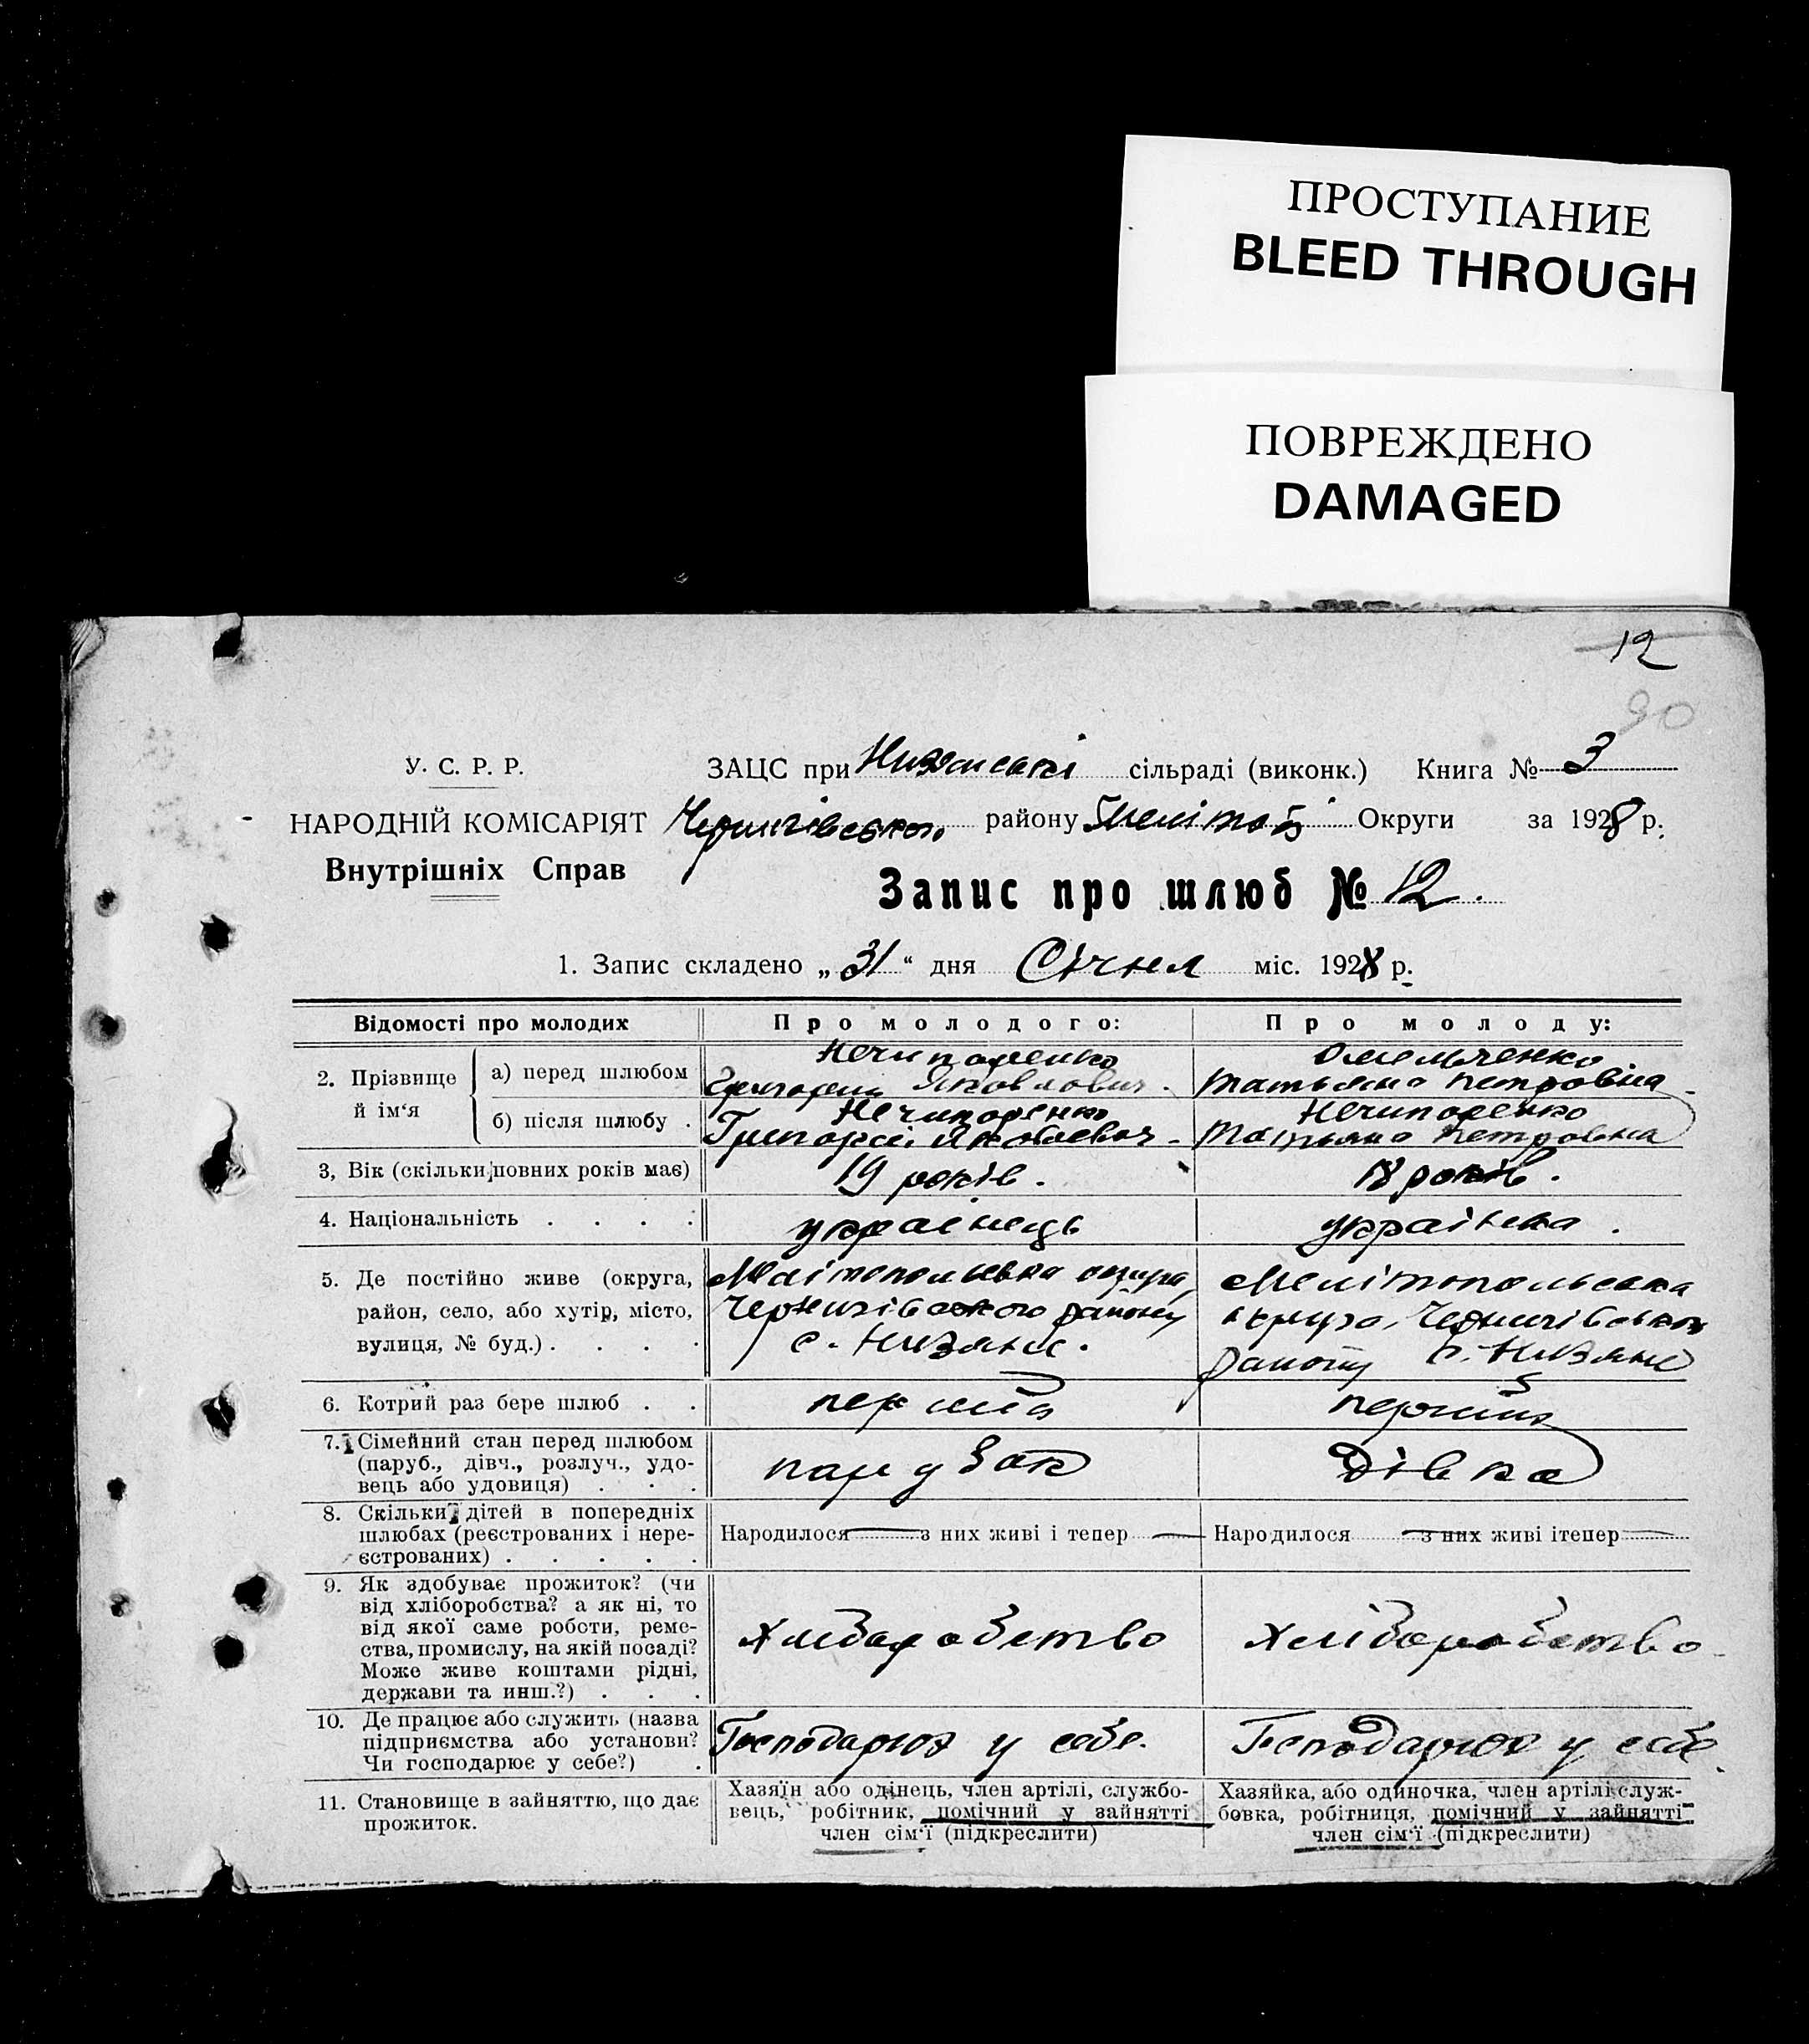 ПРОСТУПАНИЕ
BLEED THROUGH
ПОВРЕЖДЕНО
DAMAGED
12
90
У. С. Р. Р.
НАРОДНІЙ КОМІСАРІЯТ
Внутрішніх Справ
ЗАЦС при сільраді (виконк.) Книга № 3
Чернигівського району Мелітоп Округи за 1928 р.
Запис про шлюб № 12.
1. Запис складено „31“ дня Січня міс. 1928 р.
Відомості про молодих
Про молодого:
Про молоду:
2. Прізвище й ім‘я
а) перед шлюбом
Нечипоренко
Григорий Яковлович.
Омельченко
Татьяна Петровна
б) після шлюбу .
Нечипоренко
Григорий Яковлевич -
Нечипоренко
Татьяна Петровна
3, Вік (скільки повних років має)
19 років.
18 років.
4. Національність . . . .
украінець
украінка.
5. Де постійно живе (округа,
район, село, або хутір, місто,
вулиця, № буд.) . . . .
Мелітопольська округа,
Чернигівського району
с. Низяне.
Мелітопольська
округа, Чернигівського
району с. Низяне
6. Котрий раз бере шлюб . .
перший
перший
7. Сімейний стан перед шлюбом
(паруб., дівч., розлуч., удо-
вець або удовиця) . . .
парубок
Дівка
8. Скільки дітей в попередніх
шлюбах (реєстрованих і нере-
єстрованих) . . . . .
Народилося — з них живі і тепер —
Народилося — з них живі ітепер —
9. Як здобуває прожиток? (чи
від хліборобства? а як ні, то
від якої саме роботи, реме-
ства, промислу, на якій посаді?
Може живе коштами рідні,
держави та инш.?) . . .
Хлібаробство
Хліборобство
10. Де працює або служить (назва
підприємства або установи?
Чи господарює у себе?) .
Господарює у себе.
Господарює у себе.
11. Становище в зайняттю, що дає
прожиток.
Хазяїн або одінець, член артілі, службо-
вець, робітник, помічний у зайнятті
член сім‘ї (підкреслити)
Хазяйка, або одиночка, член артілі служ-
бовка, робітниця, помічний у зайнятті
член сім‘ї (підкреслити)